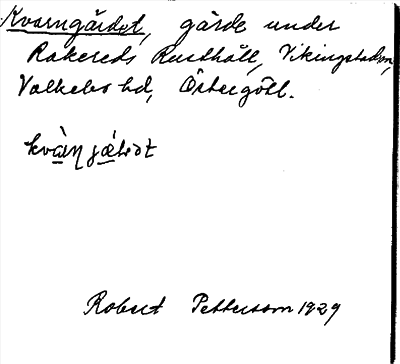 Kvarngärdet, gärde under
Rakereds Rusthåll, Vikingstads sn,
Valkebo hd, Östergötl.
Robert Pettersson 1929